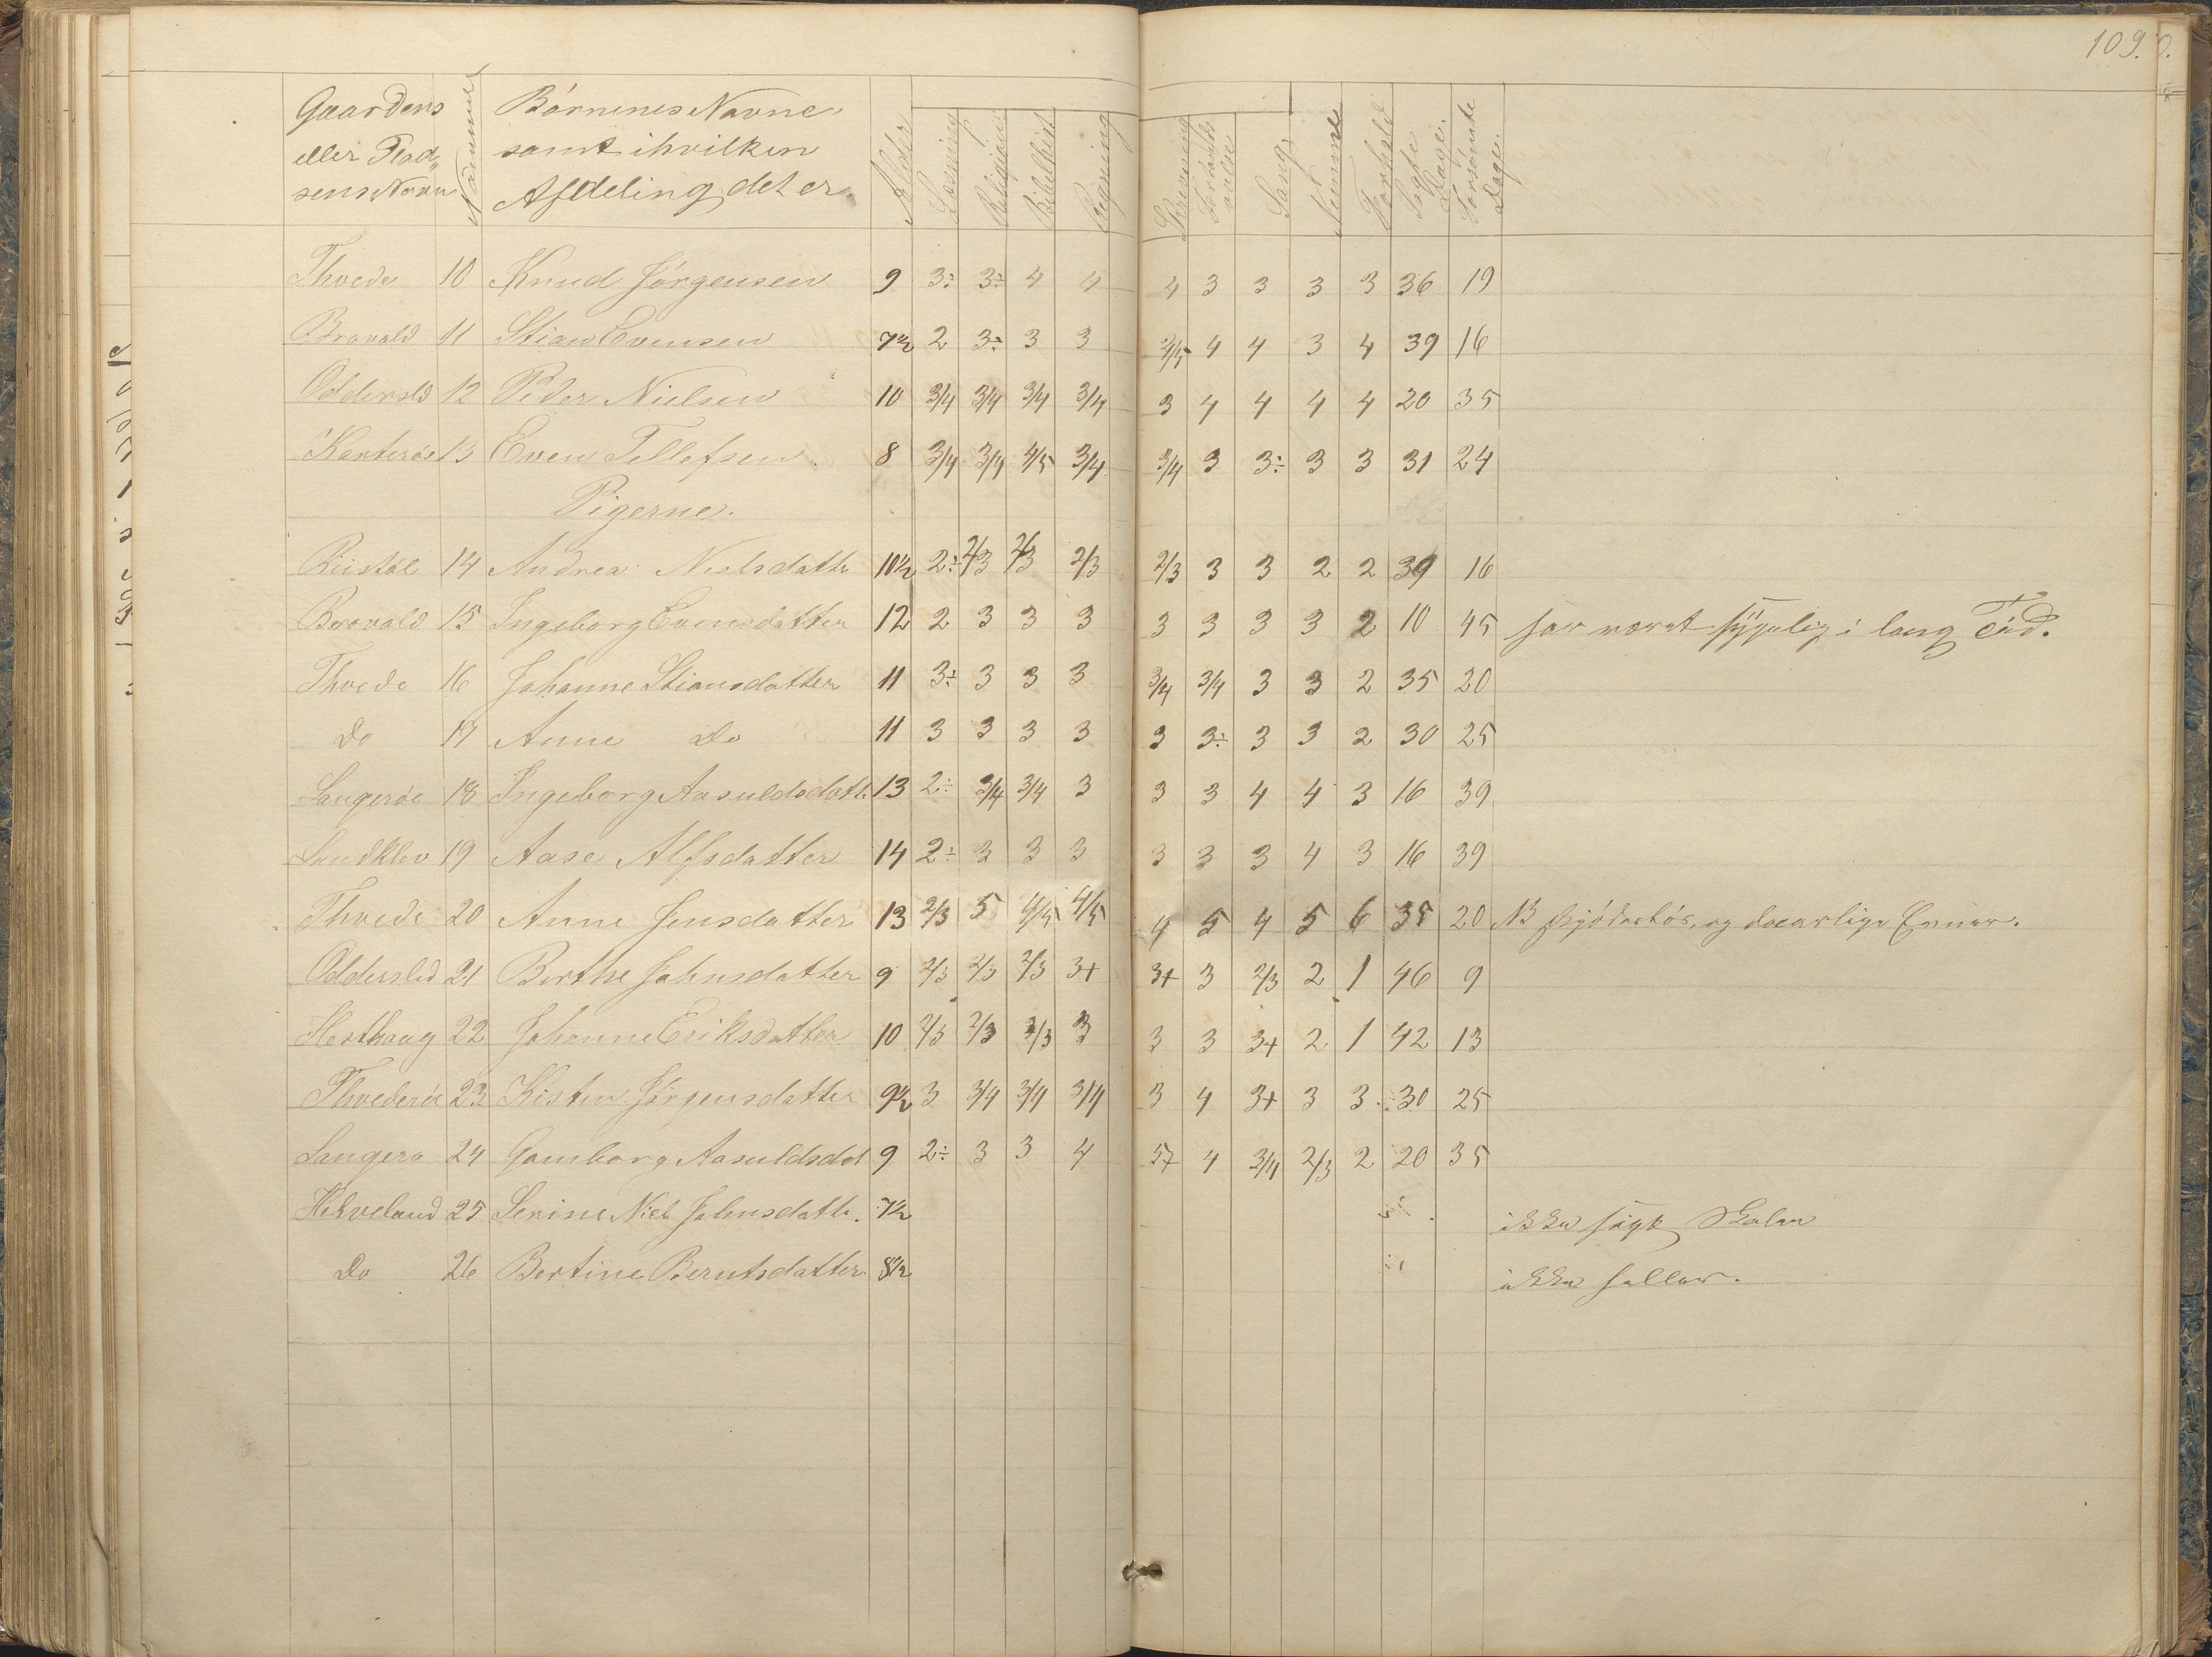 109.
Gaardens eller Plad„sens Navn | Nummer | Börnenes Navne samt i hvilken Afdeling det er. | Alder | Læsning | Religion | Bibelhist | Regning | Skrivning | Forstands øvelse | Sang | Nemme | Forhold | Søgte Dage. | Forsömte Dage.
Thvede 10 Knud Jörgensen 9 3÷ 3÷ 4 4 4 3 3 3 3 36 19
Brovald 11 Stian Evensen 7½ 2 3÷ 3 3 4/5 4 4 3 4 39 16
Oddersld 12 Peder Nielsen 10 3/4 3/4 3/4 3/4 3 4 4 4 4 20 35
13 Even Tellefsen 8 3/4 3/4 4/5 3/4 3/4 3 3÷ 3 3 31 24
Pigerne.
14 Andrea Nielsdatte 10½ 2÷ 2/3 2/3 2/3 2/3 3 3 2 2 39 16
Brovald 15 Ingeborg Evensdatter 12 2 3 3 3 3 3 3 3 2 10 45 har været sygelig i lang Tid.
Thvede 16 Johanne Stiansdatter 11 3÷ 3 3 3 3/4 3/4 3 3 2 35 20
Do 17 Anne Do 11 3 3 3 3 3 3÷ 3 3 2 30 25
Langeröe 18 Ingeborg Aasuldsdatt. 13 2÷ 3/4 3/4 3 3 3 4 4 3 16 39
Sandklev 19 Aase Alfsdatter 14 2÷ 3 3 3 3 3 3 4 3 16 39
Thvede 20 Anne Jensdatter 13 2/3 5 4/5 4/5 4 5 4 5 6 35 20 NB og daarlige Evner.
Oddersled 21 Berthe Johnsdatter 9 2/3 2/3 2/3 3+ 3+ 3 2/3 2 1 46 9
Hesthaag 22 Johanne Eriksdatter 10 2/3 2/3 2/3 3 3 3 3+ 2 1 42 13
Thvederöe 23 Kisten Jörgensdatter 9½ 3 3/4 3/4 3/4 3 4 3+ 3 3 30 25
Langerö 24 Gomborg Aasuldsdat 9 2÷ 3 3 4 5+ 4 3/4 2/3 2 20 35
Helveland 25 Serine Niel Johnsdatte. 7½ ikke søgt Skolen
Do 26 Bertine Berntsdatter 8½ ikke heller.